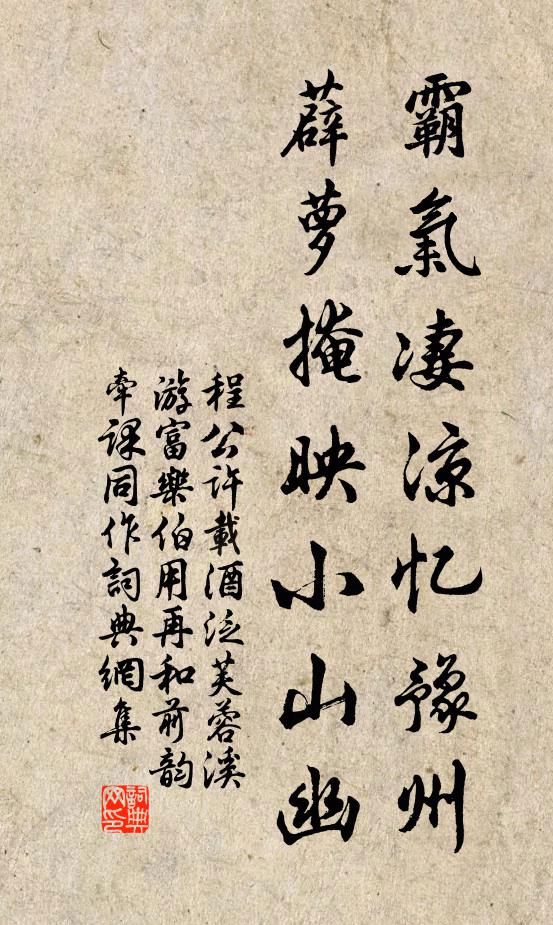 霸氣凄涼忆豫州
薜萝掩映小山幽
程公许載酒泛芙蓉溪
游富樂伯用再和前韵
牵课同作詞典網集
詞典网印